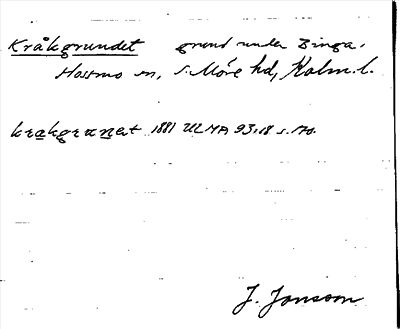 Kråkgrundet grund under Binga,
Hossmo sn, S. Möre hd, Kalm. l.
krakgrunet 1881 ULMA 93:18 s. 170.
J. Jonsson